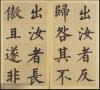 出汝者不反
歸咎其不
出汝者長
傲且遂非